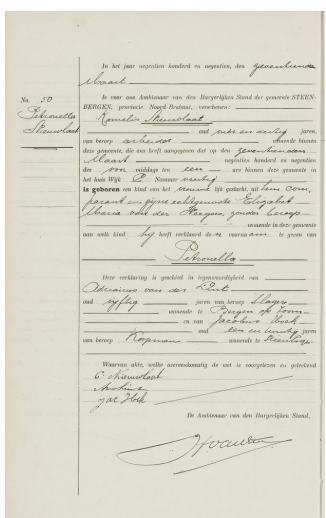 In het jaar negentien honderd en negentien, den zeventienden
Maart
No. 50
Petronella
Nieuwlaat
is voor ons Ambtenaar van den Burgerlijken Stand der gemeente STEEN-
BERGEN, provincie Noord-Brabant, verschenen:
Kornelis Nieuwlaat
oud jaren,
van beroep arbeider wonende binnen
deze gemeente, die ons heeft aangegeven dat op den zeventienden
Maart negentien honderd en negentien
des voor middags ten een ure binnen deze gemeente in
het huis Wijk Nommer veertig
is geboren een kind van het vrouwelijk geslacht, uit hem com-
parant en zijne echtgenoote Elizabet
Maria van der zonder beroep
wonende in deze gemeente
aan welk kind hij heeft verklaard de voornaam te geven van
Petronella
Deze verklaring is geschied in tegenwoordigheid van
Adrianus van der
oud vijftig jaren van beroep Slager
wonende te Bergen op Zoom
en van Jacobus Hoek
oud een en jaren
van beroep Koopman wonende te Steenbergen
Waarvan akte, welke overeenkomstig de wet is voorgelezen en geteekend
C. Nieuwlaat
Jac Hoek
De Ambtenaar van den Burgerlijken Stand,